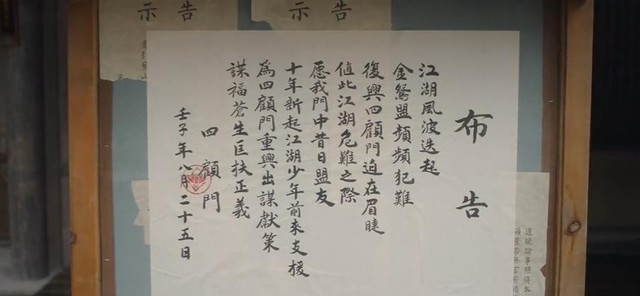 告示
告示
布告
江湖風波迭起
金鴛盟頻頻犯難
復興四顧門迫在眉睫
值此江湖危難之際
愿我門中昔日盟友
十年新起江湖少年前來支援
為四顧門重興出謀獻策
謀福蒼生匡扶正義
四顧門
壬子年八月二十五日